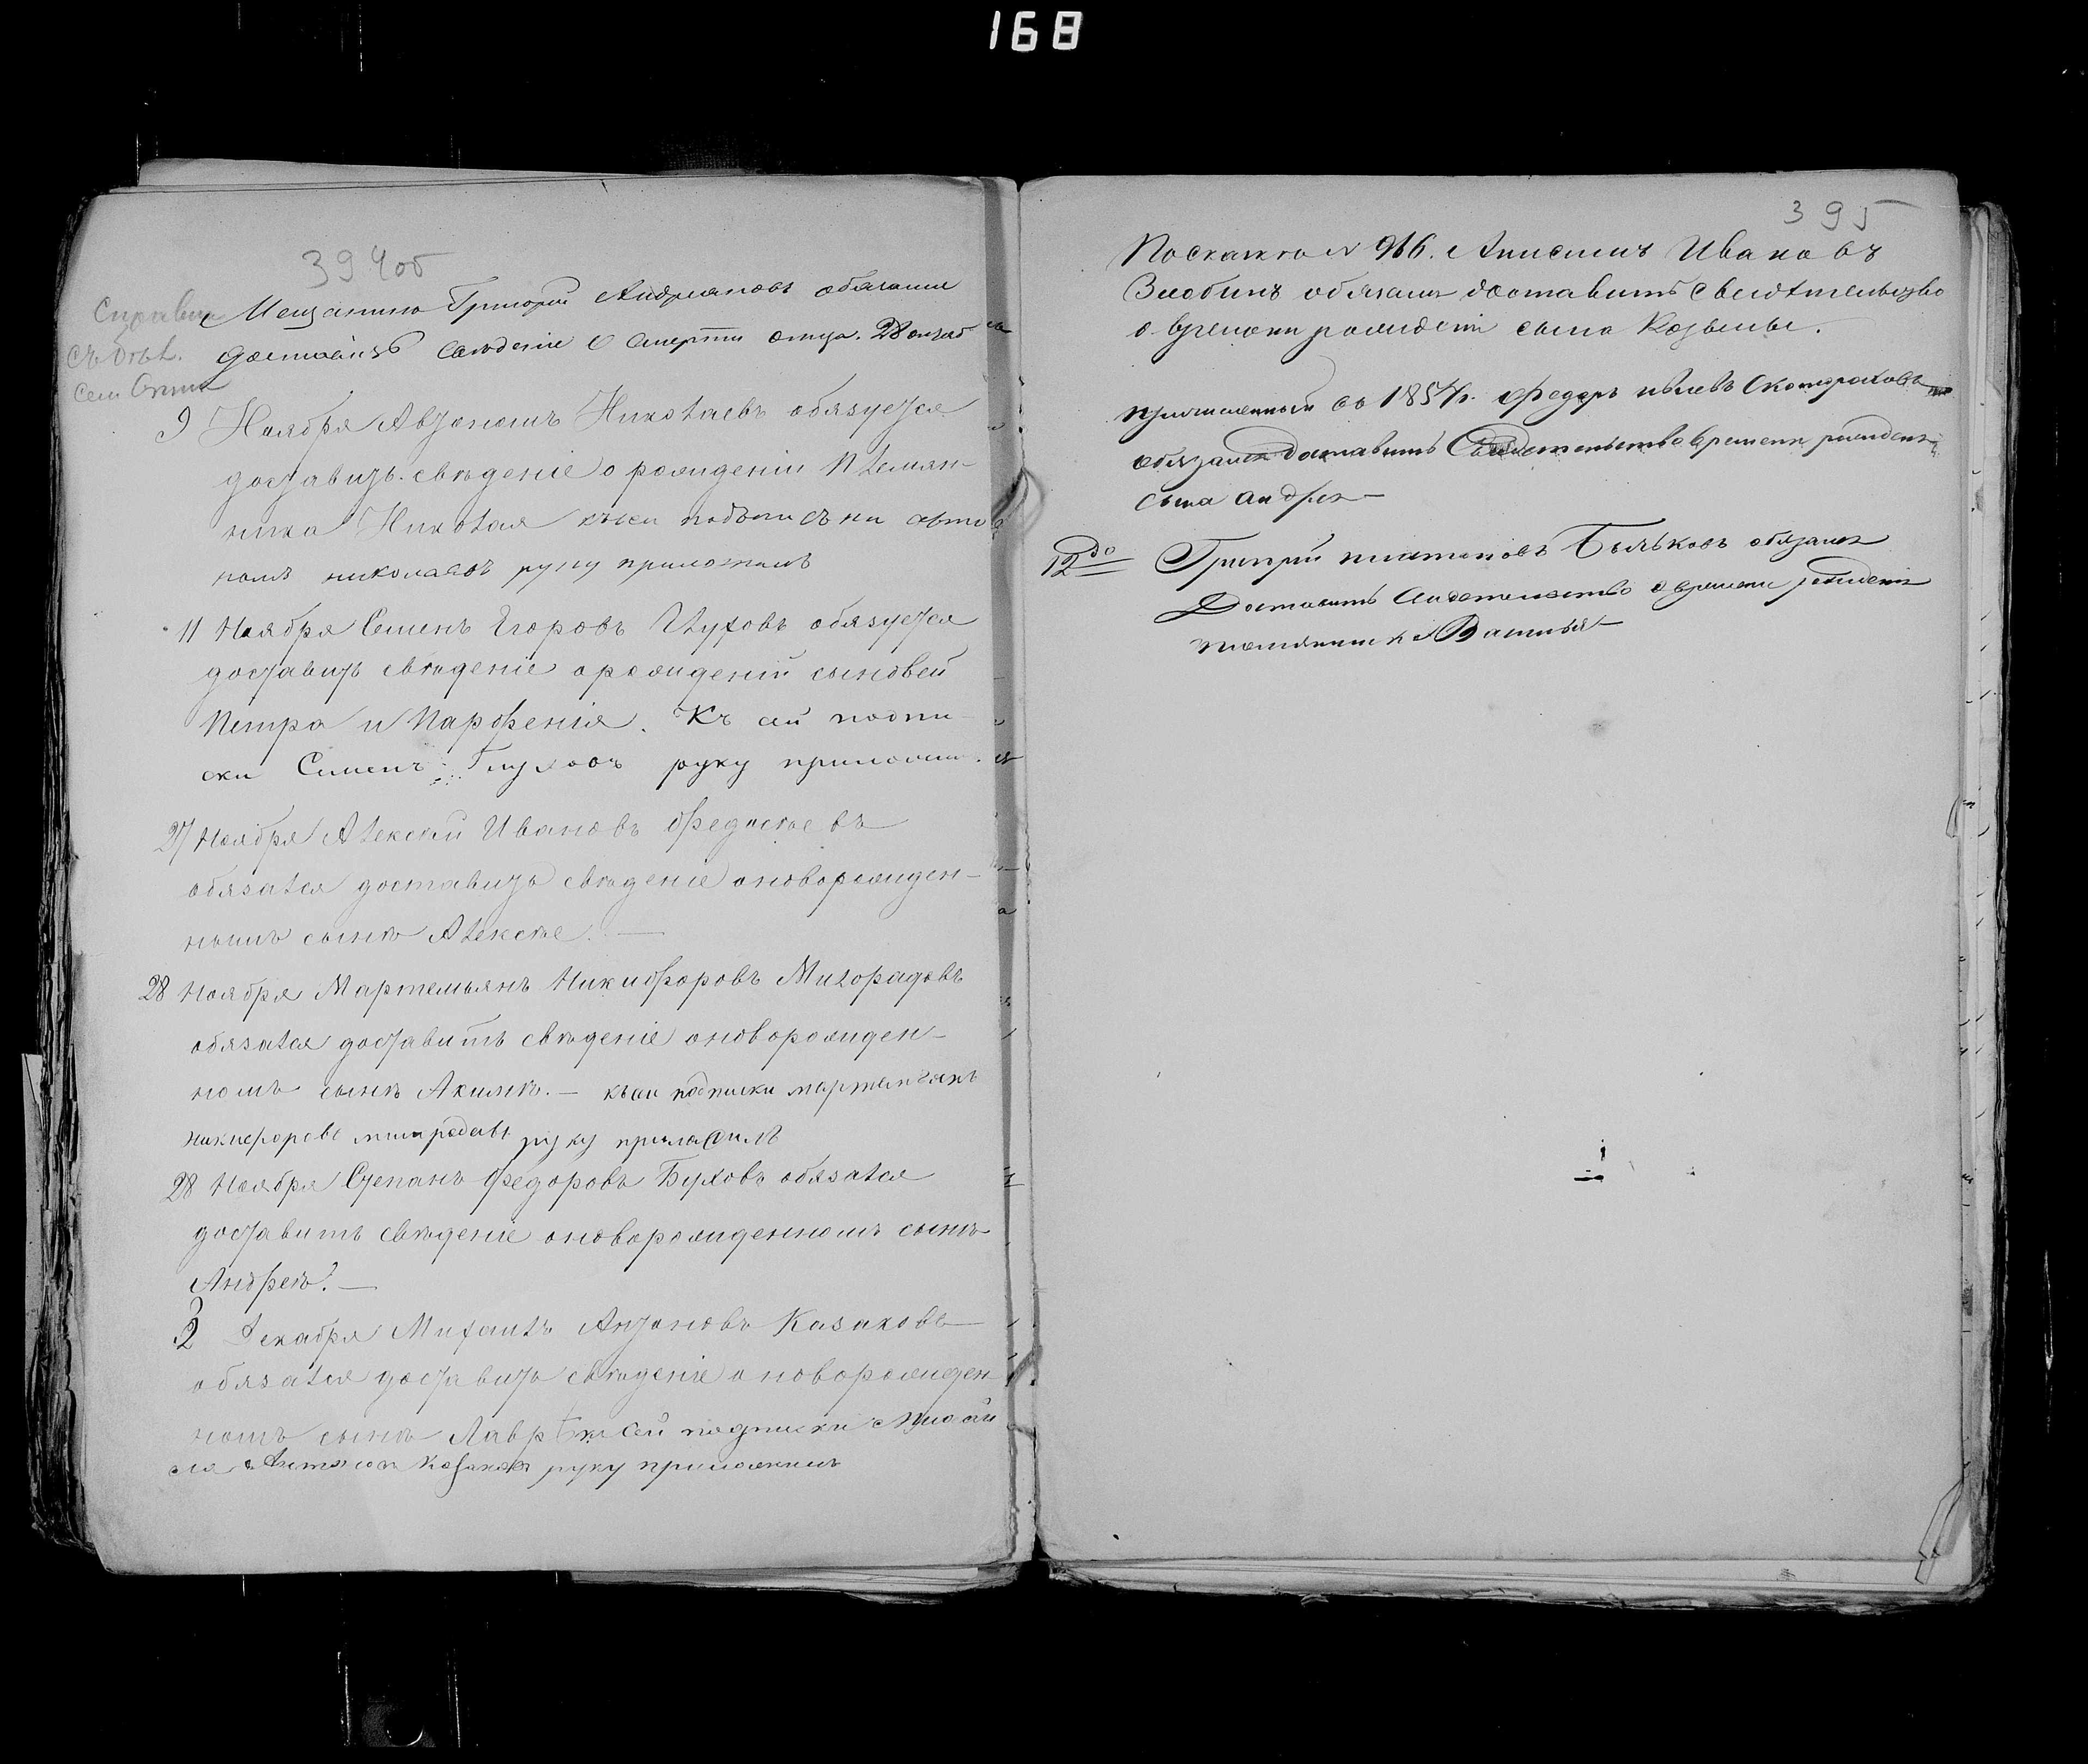 168
394об
Мещанинъ Григорій Андреяновъ обязался
доставить свѣденіе о смерти отца.
9 Ноября Автономъ Николаевъ обязуется
доставить свѣденіе о рожденіи племян-
ника Николая къ сей подъписъки авто
номъ николаевъ руку приложилъ
11 Ноября Семенъ Егоровъ Глуховъ обязуется
доставить свѣденіе о рожденіи сыновей
Петра и Парфенія. Къ сей подпи-
ски Семенъ Глуховъ руку приложилъ.
27 Ноября Алексѣй Ивановъ
обязался доставить свѣденіе о новорожден-
номъ сынѣ Алексѣе. —
28 Ноября Мартемьянъ Никифоровъ Милорадовъ
обязался доставить свѣденіе о новорожден-
номъ сынѣ Акимѣ. — къ сей подписки мартемьянъ
никифоровъ руку
28 Ноября Степанъ Федоровъ Буховъ обязался
доставить свѣденіе о новорожденномъ сынѣ
Андреѣ. —
Декабря Михаилъ Антоновъ Казаковъ
обязался доставить свѣденіе о новорожден
номъ сынѣ Лавр къ сей подписки
Антоновъ Казаковъ руку приложилъ
395
По скаске N 966. Анисимъ Ивановъ
Злобинъ обязался доставить свидѣтельство
о времени рожденія сына Козьмы.
причисленный съ 1857 г. Федоръ
обязался доставить Свидетельство времени рожденія
сына андрея —
12 до Григорій Бѣльковъ обязался
Доставить свидетельство о времени рожденія
племянника Василья —